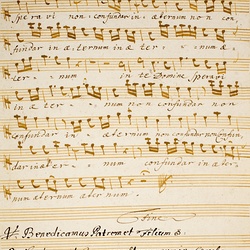 speravi non confundar in æternum non con,
fundar in æternum in æter - num æ,
ter - num in te Domine speravi
in æ ter - num non confundar non
confundar in æternum non confundar non confun,
dar in æter - num confundar in æter -
num æternum æternum.
Fine
V. Benedicamus Patrem et Filium &: